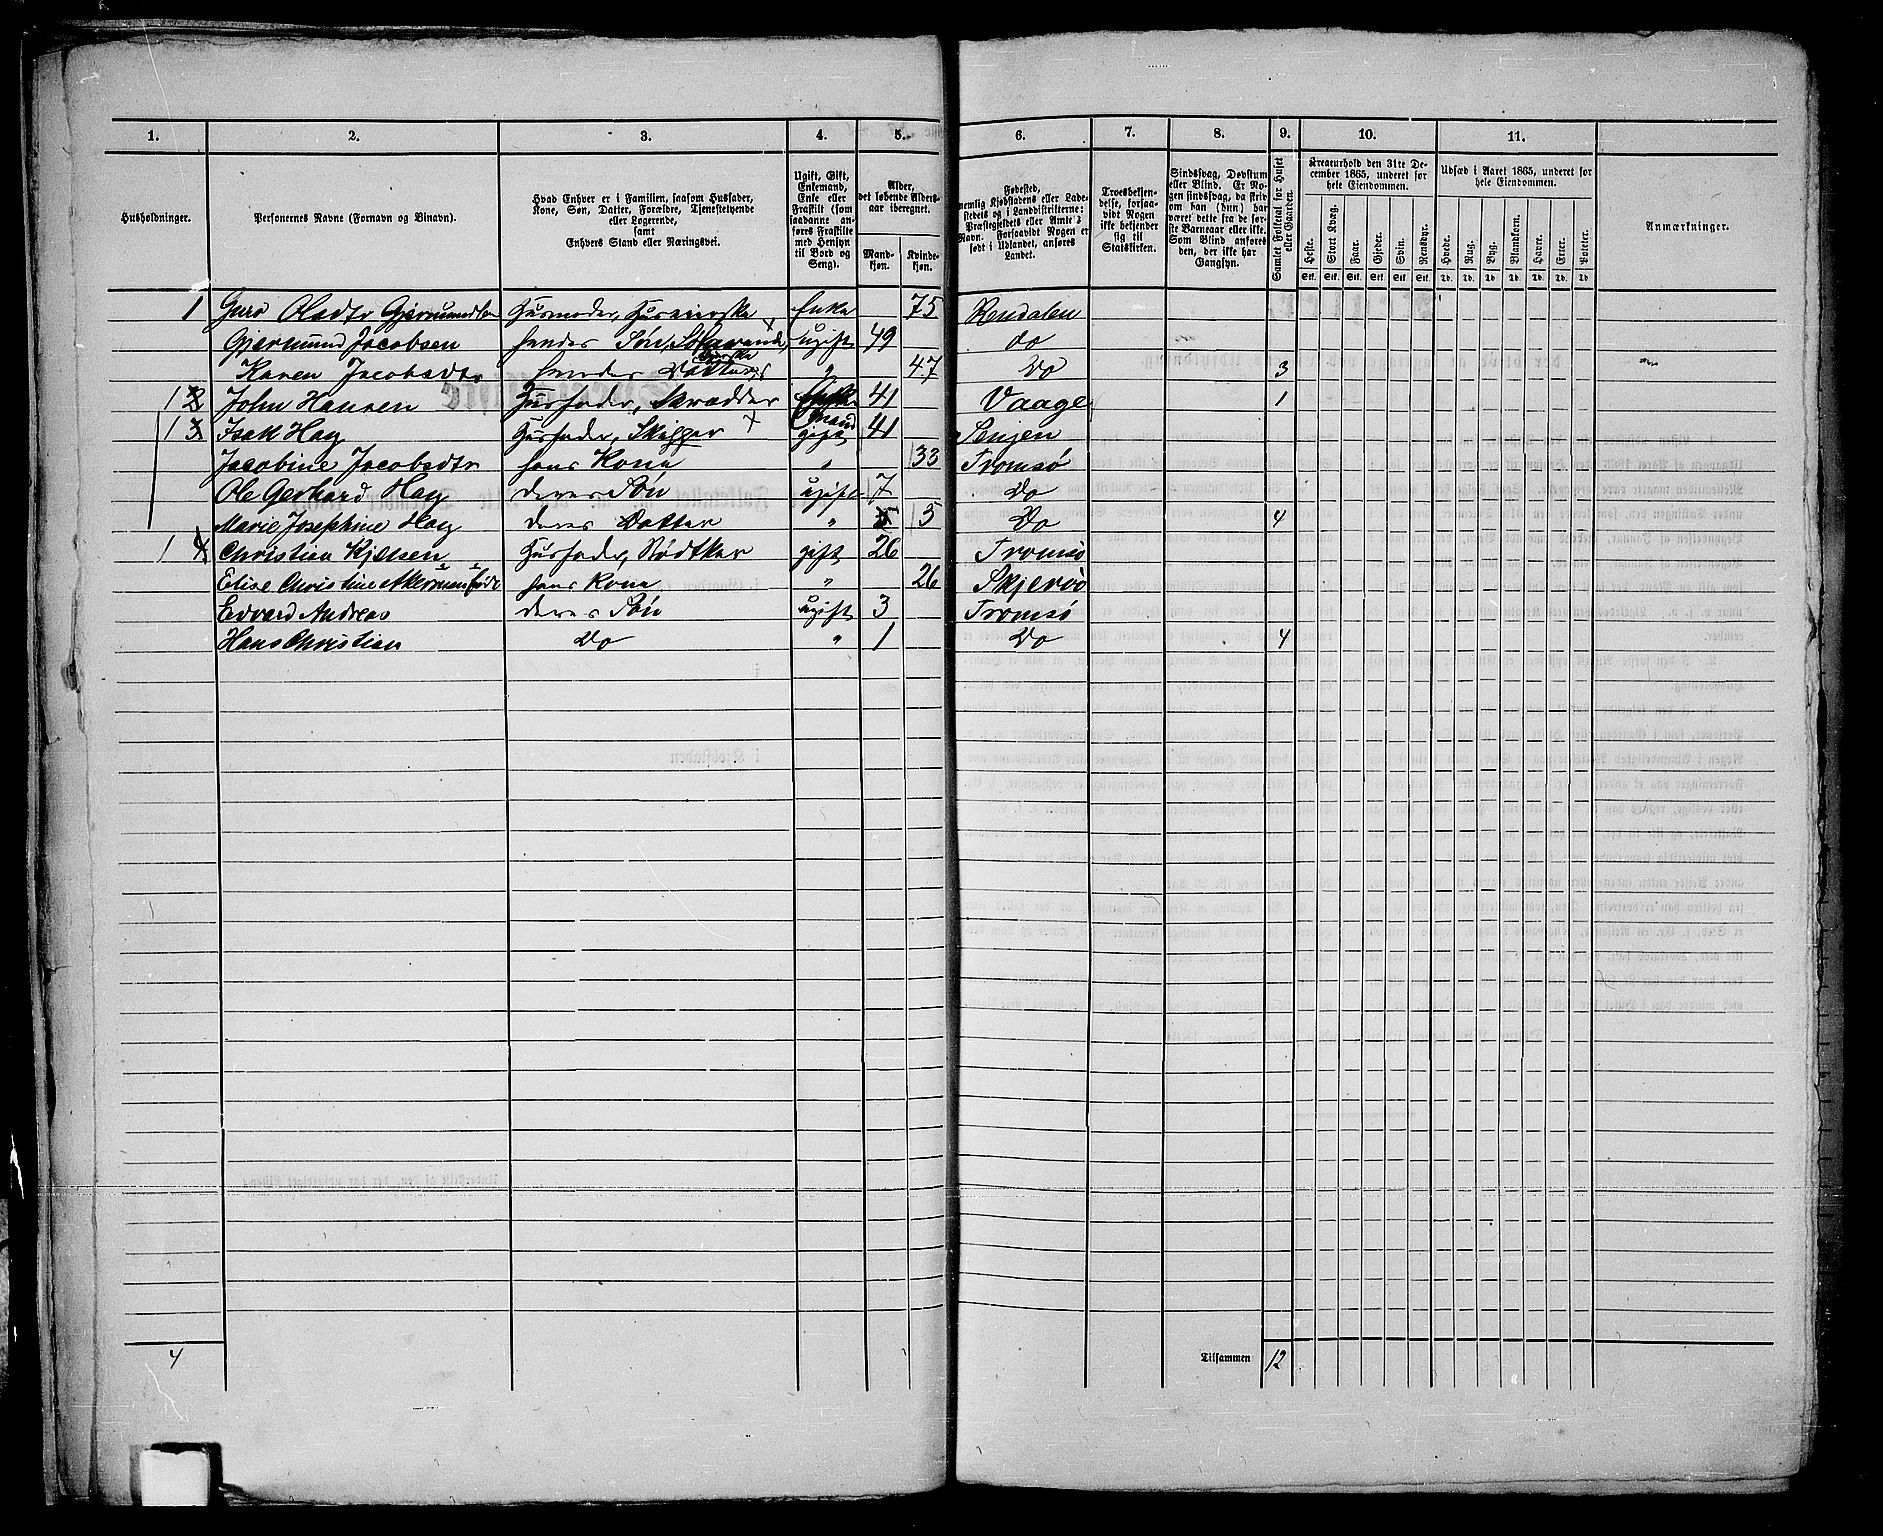 1. 2. 3. 4. 5. 6. 7. 8. 9. 10. 11.
Husholdninger.
Personernes Navne (Fornavn og Binavn).
Hvad Enhver er i Familien, saasom Husfader,
Kone, Søn, Datter, Forældre, Tjenestetyende
eller Logerende,
samt
Enhvers Stand eller Næringsvei.
Ugift, Gift,
Enkemand,
Enke eller
Fraskilt (som
saadanne an-
føres Fraskilte
med Hensyn
til Bord og
Seng).
Alder,
det løbende Alders-
aar iberegnet.
Mand-
kjøn.
Kvinde-
kjøn.
Fødested,
nemlig Kjøbstadens eller Lade-
stedets og i Landdistrikterne:
Præstegjeldets eller Amtets
Navn. Forsaavidt Nogen er
født i Udlandet, anføres
Landet.
Troesbekjen-
delse, forsaa-
vidt Nogen
ikke bekjender
sig til
Statskirken.
Sindssvag, Døvstum
eller Blind. Er No-
gen sindssvag, da skri-
ves han (hun) har
været dette fra de før-
ste Barneaar eller ikke.
Som Blind anføres
den, der ikke har
Gangsyn.
Samlet Folketal for Huset
eller Gaarden.
Kreaturhold den 31te De-
cember 1865, underet for
hele Eiendommen.
Heste. Stort Kvæg. Faar. Gjeder. Svin. Rensdyr.
Stk. Stk. Stk. Stk. Stk. Stk.
Udsæd i Aaret 1865, underet for
hele Eiendommen.
Hvede. Rug. Byg. Blandkorn. Havre. Erter. Poteter.
Td. Td. Td. Td. Td. Td. Td.
Anmærkninger.
1 Guro Oladtr Gjermundsen Husmoder, Enke 75 Rendalen
Gjermund Jacobsen hendes Søn, ugift 49 do
Karen Jacobsdtr hendes Datter " 47 Do 3
1 2 John Hansen Husfader, Skrædder Enkemand 41 Vaage 1
1 3 Isak Hag Husfader, Skipper gift 41 Senjen
Jacobine Jacobsdtr hans Kone " 33 Tromsø
Ole Gerhard Hag deres Søn ugift 7 Do
Marie Josephine Hag deres Datter " 5 5 Do 4
1 4 Christian Kjelsen Husfader, Bødtker gift 26 Tromsø
Elise Christine hans Kone " 26 Skjervø
Edvard Andreas deres Søn ugift 3 Tromsø
Hans Christian Do " 1 Do 4
4 Tilsammen 12